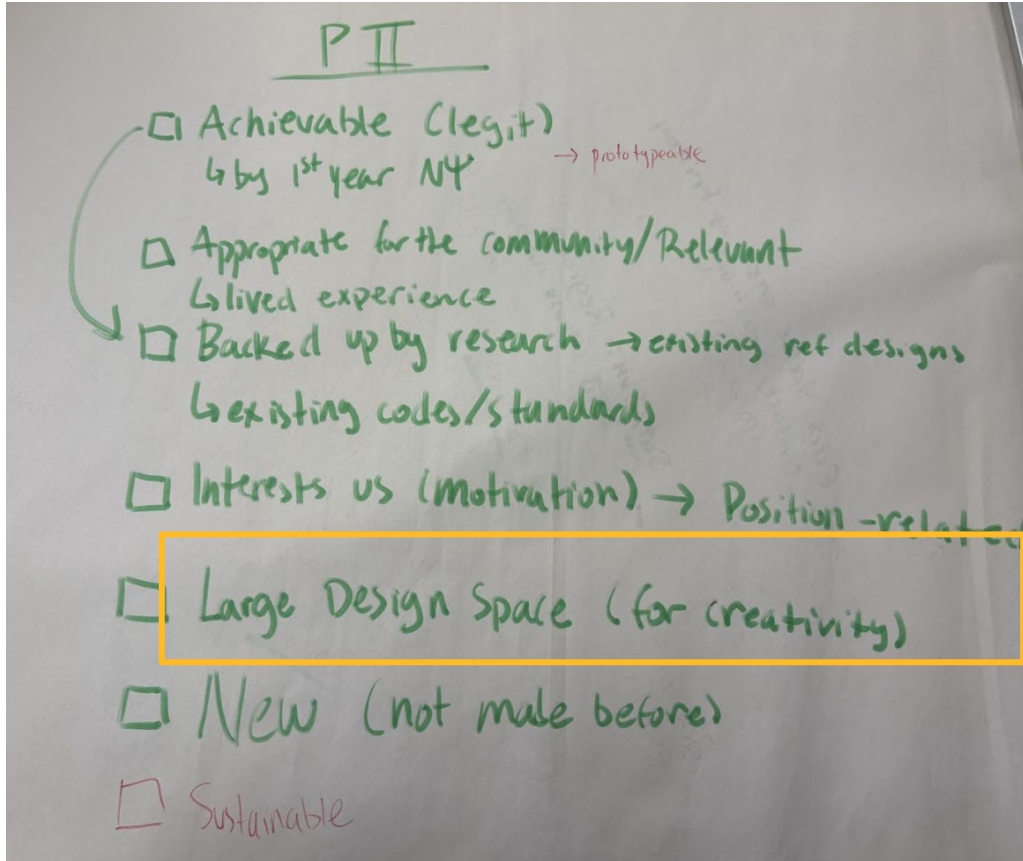 P II
□ Achievable (legit)
→ prototypeable
↳ by 1st year NΨ
□ Appropriate for the community/Relevant
↳ lived experience
□ Backed up by research → existing ref designs
↳ existing codes/standards
□ Interests us (motivation) → Position-related
□ Large Design Space (for creativity)
□ New (not made before)
□ Sustainable